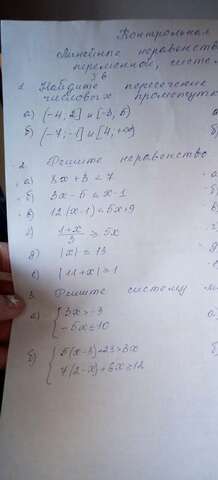 Контрольная
Линейные неравенств
переменной, систем
3 в
1. Найдите пересечение
числовых промежутк
а) (-4; 2] и [-3; 5)
б) (-7; -1] и [4; +∞)
2. Решите неравенство
а) 8x + 3 < 7
б) 3x - 5 < x - 1
в) 12(x - 1) < 5x + 9
г) 1+x/3 ≥ 5x
д) |x| = 13
е) |11 + x| = 1
3. Решите систему
а) { 3x > -3
-5x ≤ 10
б) { 5(x-3)+23>3x
7(2-x)+6x≥12